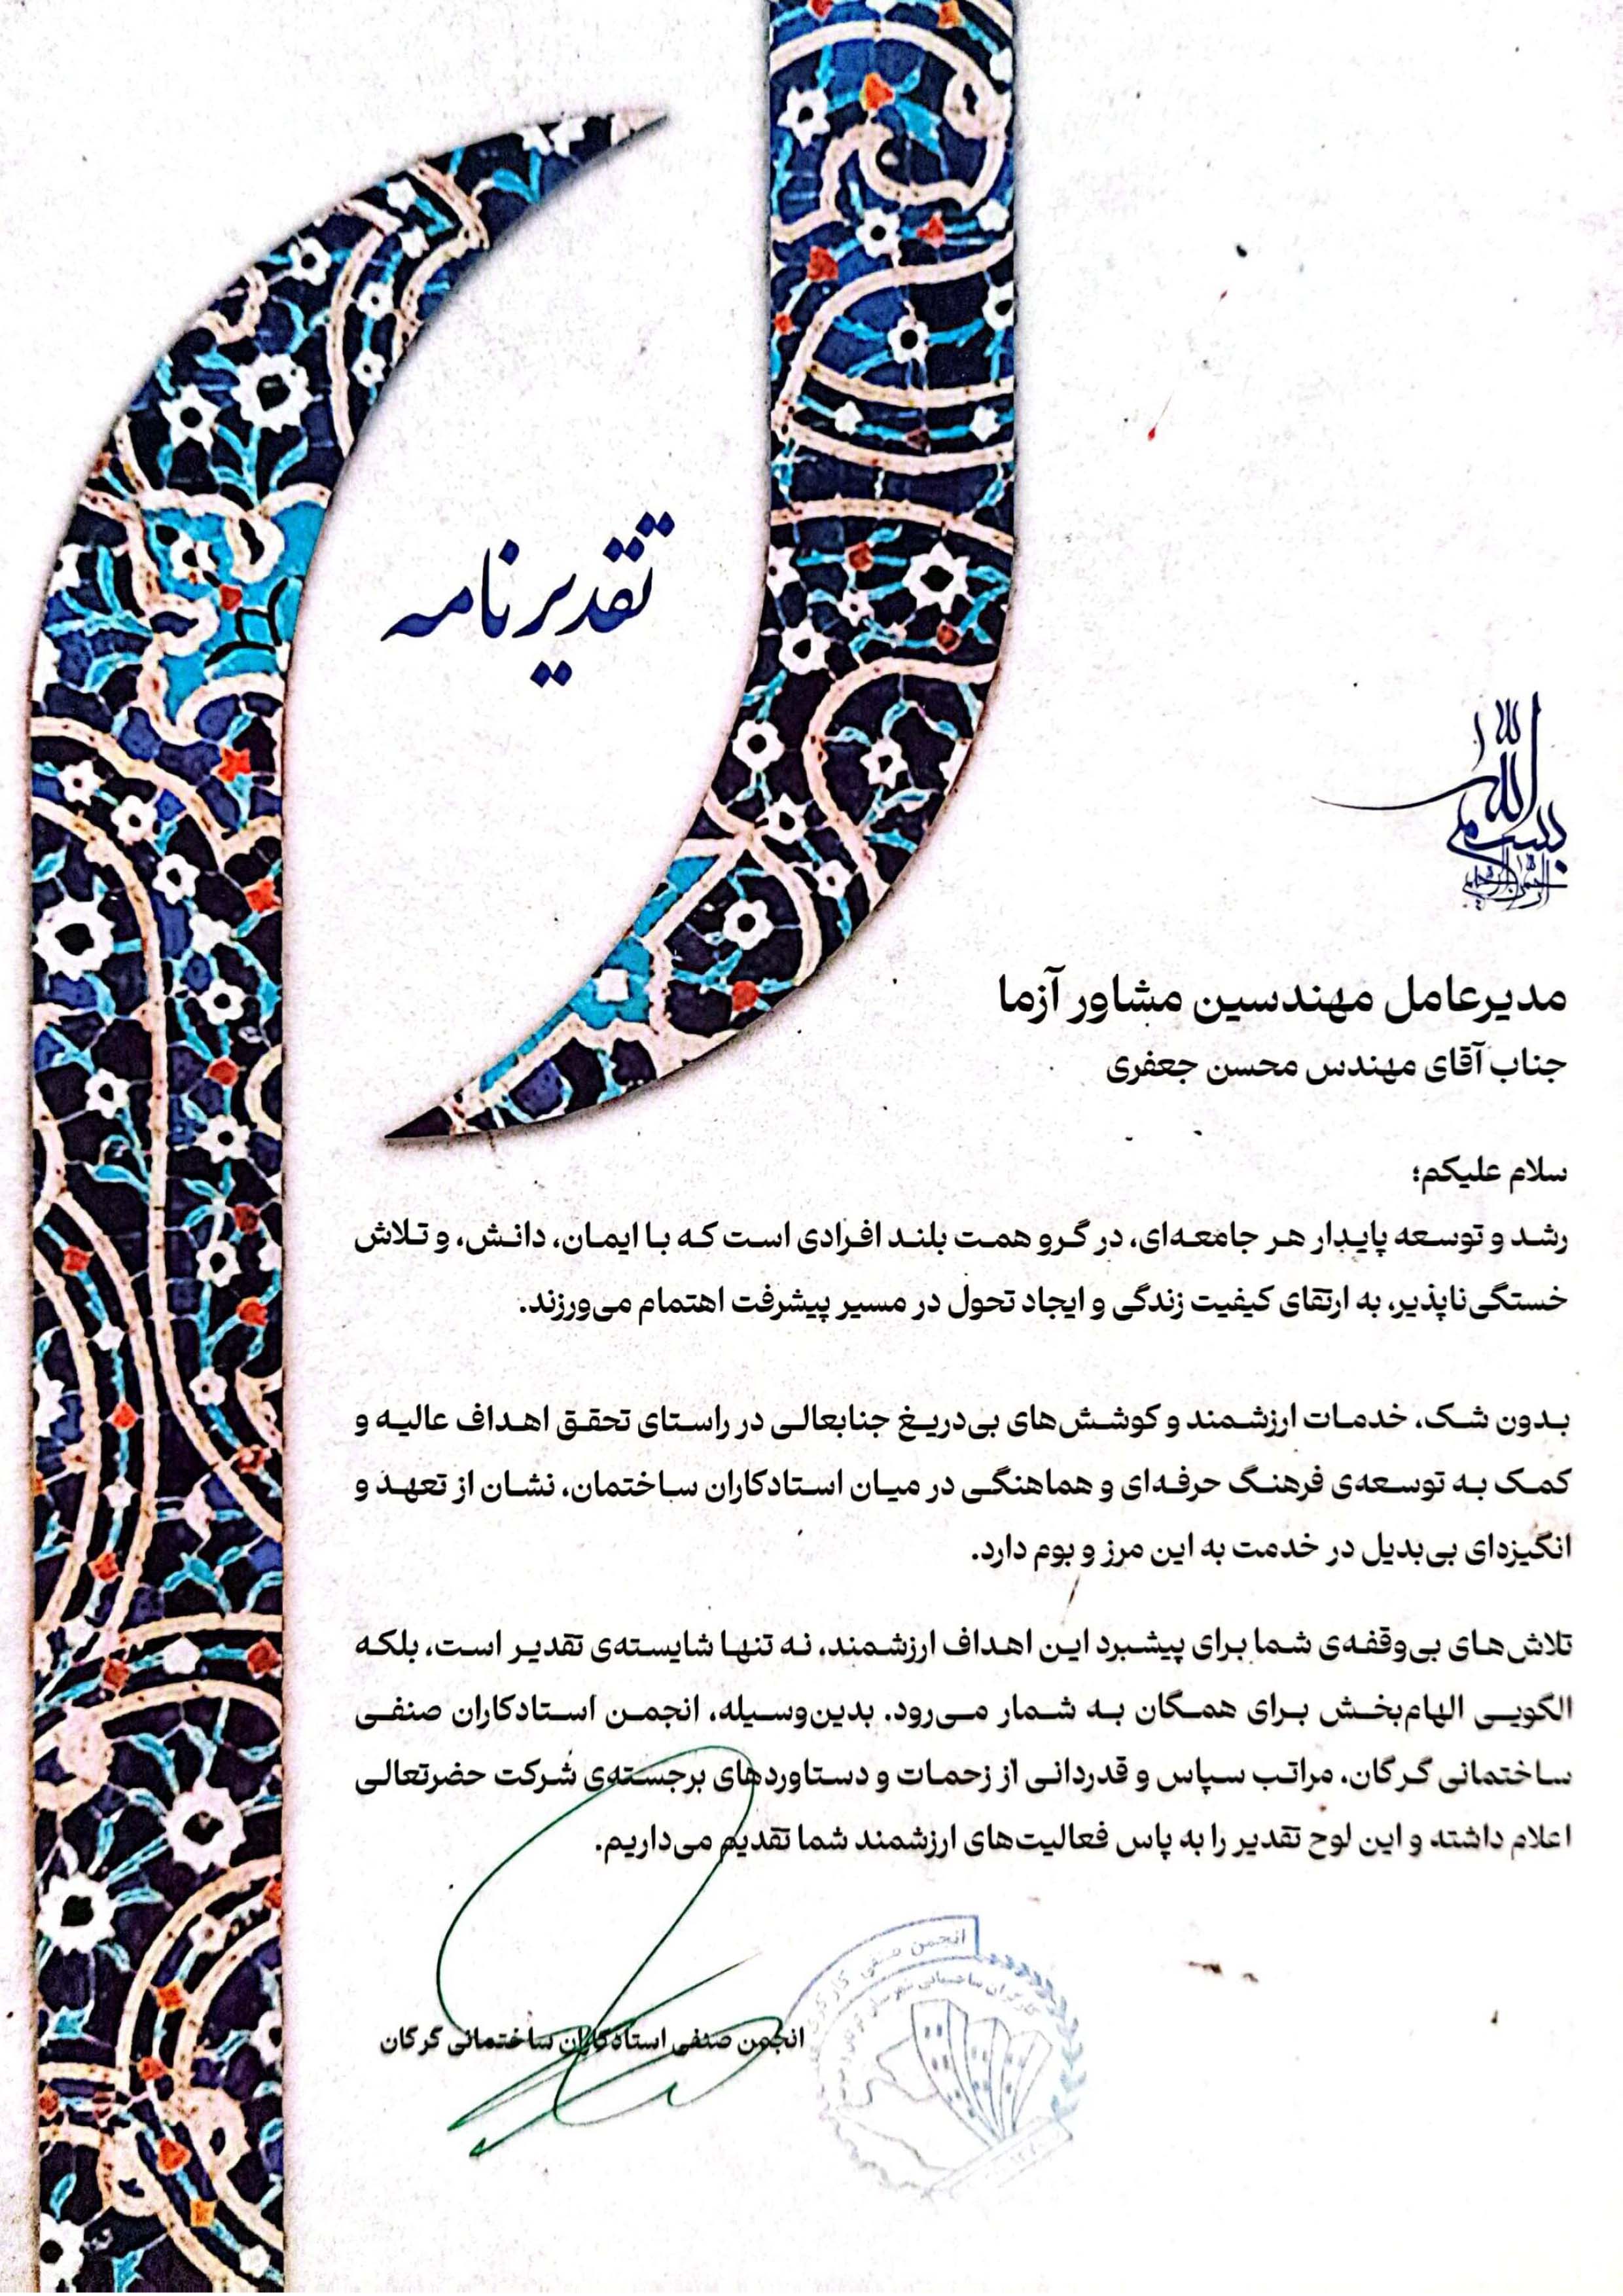 تقدیرنامه
بسم الله الرحمن الرحیم
مدیرعامل مهندسین مشاور آزما
جناب آقای مهندس محسن جعفری
سلام علیکم؛
رشد و توسعه پایدار هر جامعه‌ای، در گرو همت بلند افرادی است که با ایمان، دانش، و تلاش
خستگی‌ناپذیر، به ارتقای کیفیت زندگی و ایجاد تحول در مسیر پیشرفت اهتمام می‌ورزند.
بدون شک، خدمات ارزشمند و کوشش‌های بی‌دریغ جنابعالی در راستای تحقق اهداف عالیه و
کمک به توسعه‌ی فرهنگ حرفه‌ای و هماهنگی در میان استادکاران ساختمان، نشان از تعهد و
انگیزه‌ای بی‌بدیل در خدمت به این مرز و بوم دارد.
تلاش‌های بی‌وقفه‌ی شما برای پیشبرد این اهداف ارزشمند، نه تنها شایسته‌ی تقدیر است، بلکه
الگویی الهام‌بخش برای همگان به شمار می‌رود. بدین‌وسیله، انجمن استادکاران صنفی
ساختمانی گرگان، مراتب سپاس و قدردانی از زحمات و دستاوردهای برجسته‌ی شرکت حضرتعالی
اعلام داشته و این لوح تقدیر را به پاس فعالیت‌های ارزشمند شما تقدیم می‌داریم.
انجمن صنفی
انجمن صنفی استادکاران ساختمانی گرگان